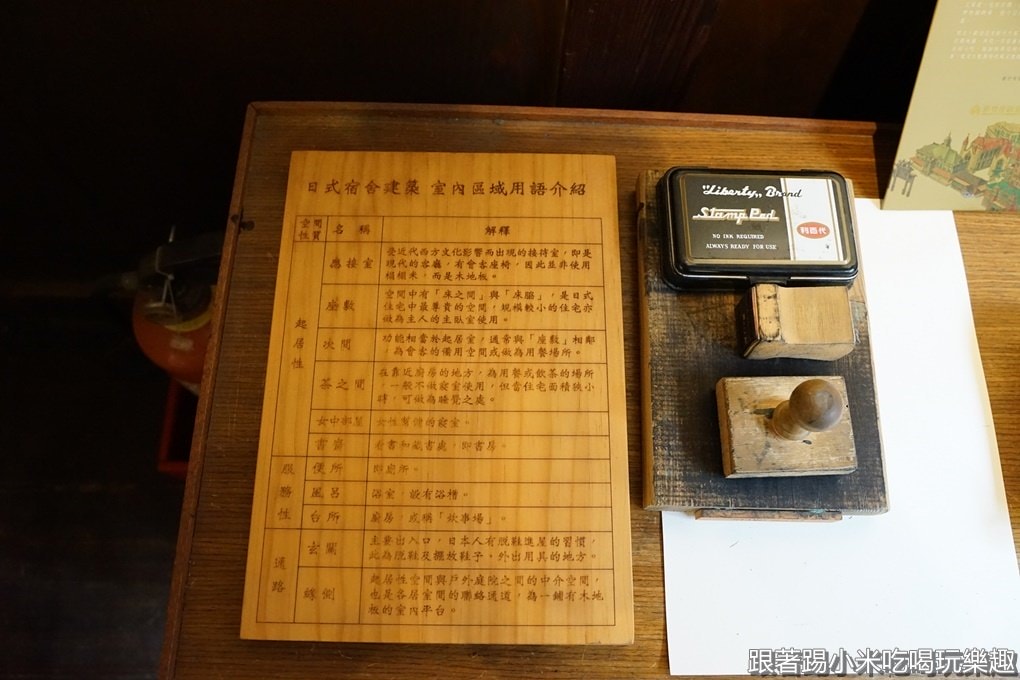 日式宿舍建築 室內區域用語介紹
空間性質
名稱
解釋
起居性
應接室
受近代西方文化影響而出現的接待室，即是
現代的客廳，有會客座椅，因此並非使用
榻榻米，而是木地板。
座敷
空間中有「床之間」與「床脇」，是日式
住宅中最尊貴的空間，規模較小的住宅亦
做為主人的主臥室使用。
次間
功能相當於起居室，通常與「座敷」相鄰
，為會客的備用空間或做為用餐場所。
茶之間
在靠近廚房的地方，為用餐或飲茶的場所
，一般不做寢室使用，但當住宅面積狹小
時，可做為睡覺之處。
女中部屋
女性幫傭的寢室。
書齋
看書和藏書處，即書房。
服務性
便所
即廁所。
風呂
浴室，設有浴槽。
台所
廚房，或稱「炊事場」。
通路
玄關
主要出入口，日本人有脫鞋進屋的習慣，
此為脫鞋及擺放鞋子、外出用具的地方。
緣側
起居性空間與戶外庭院之間的中介空間，
也是各居室間的聯絡通道，為一鋪有木地
板的室內平台。
"Liberty" Brand
Stamp Pad
NO INK REQUIRED
ALWAYS READY FOR USE
利百代
跟著踢小米吃喝玩樂趣